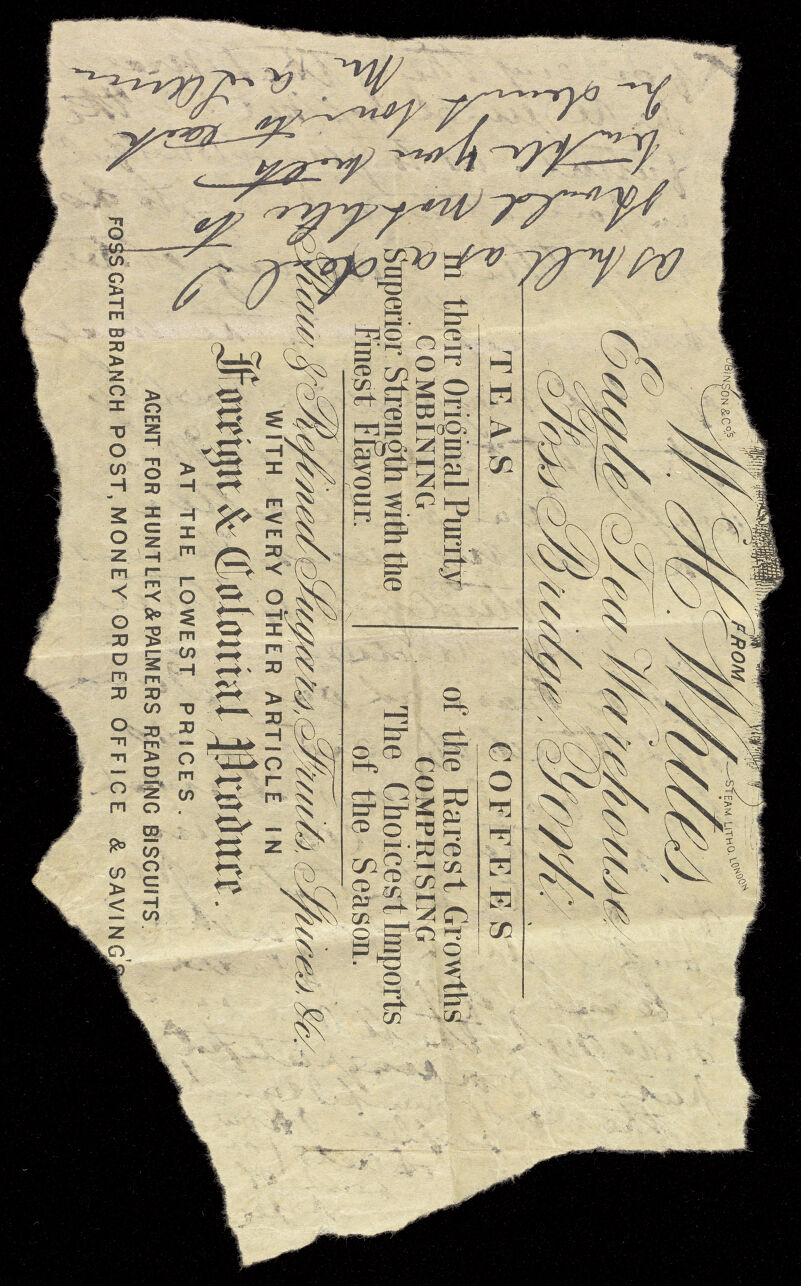 BINSON & Co's STEAM LITHO. LONDON
FROM
W. H. Whites,
Eagle Tea Warehouse,
Foss Bridge, York.
TEAS
In their Original Purity
COMBINING
Superior Strength with the
Finest Flavour.
COFFEES
of the Rarest Growths
COMPRISING
The Choicest Imports
of the Season.
Raw, & Refined Sugars, Fruits, Spices, &c.
WITH EVERY OTHER ARTICLE IN
Foreign & Colonial Produce.
AT THE LOWEST PRICES.
AGENT FOR HUNTLEY & PALMERS READING BISCUITS.
FOSS GATE BRANCH POST, MONEY ORDER OFFICE & SAVING'S
as as a I
should not like to
you